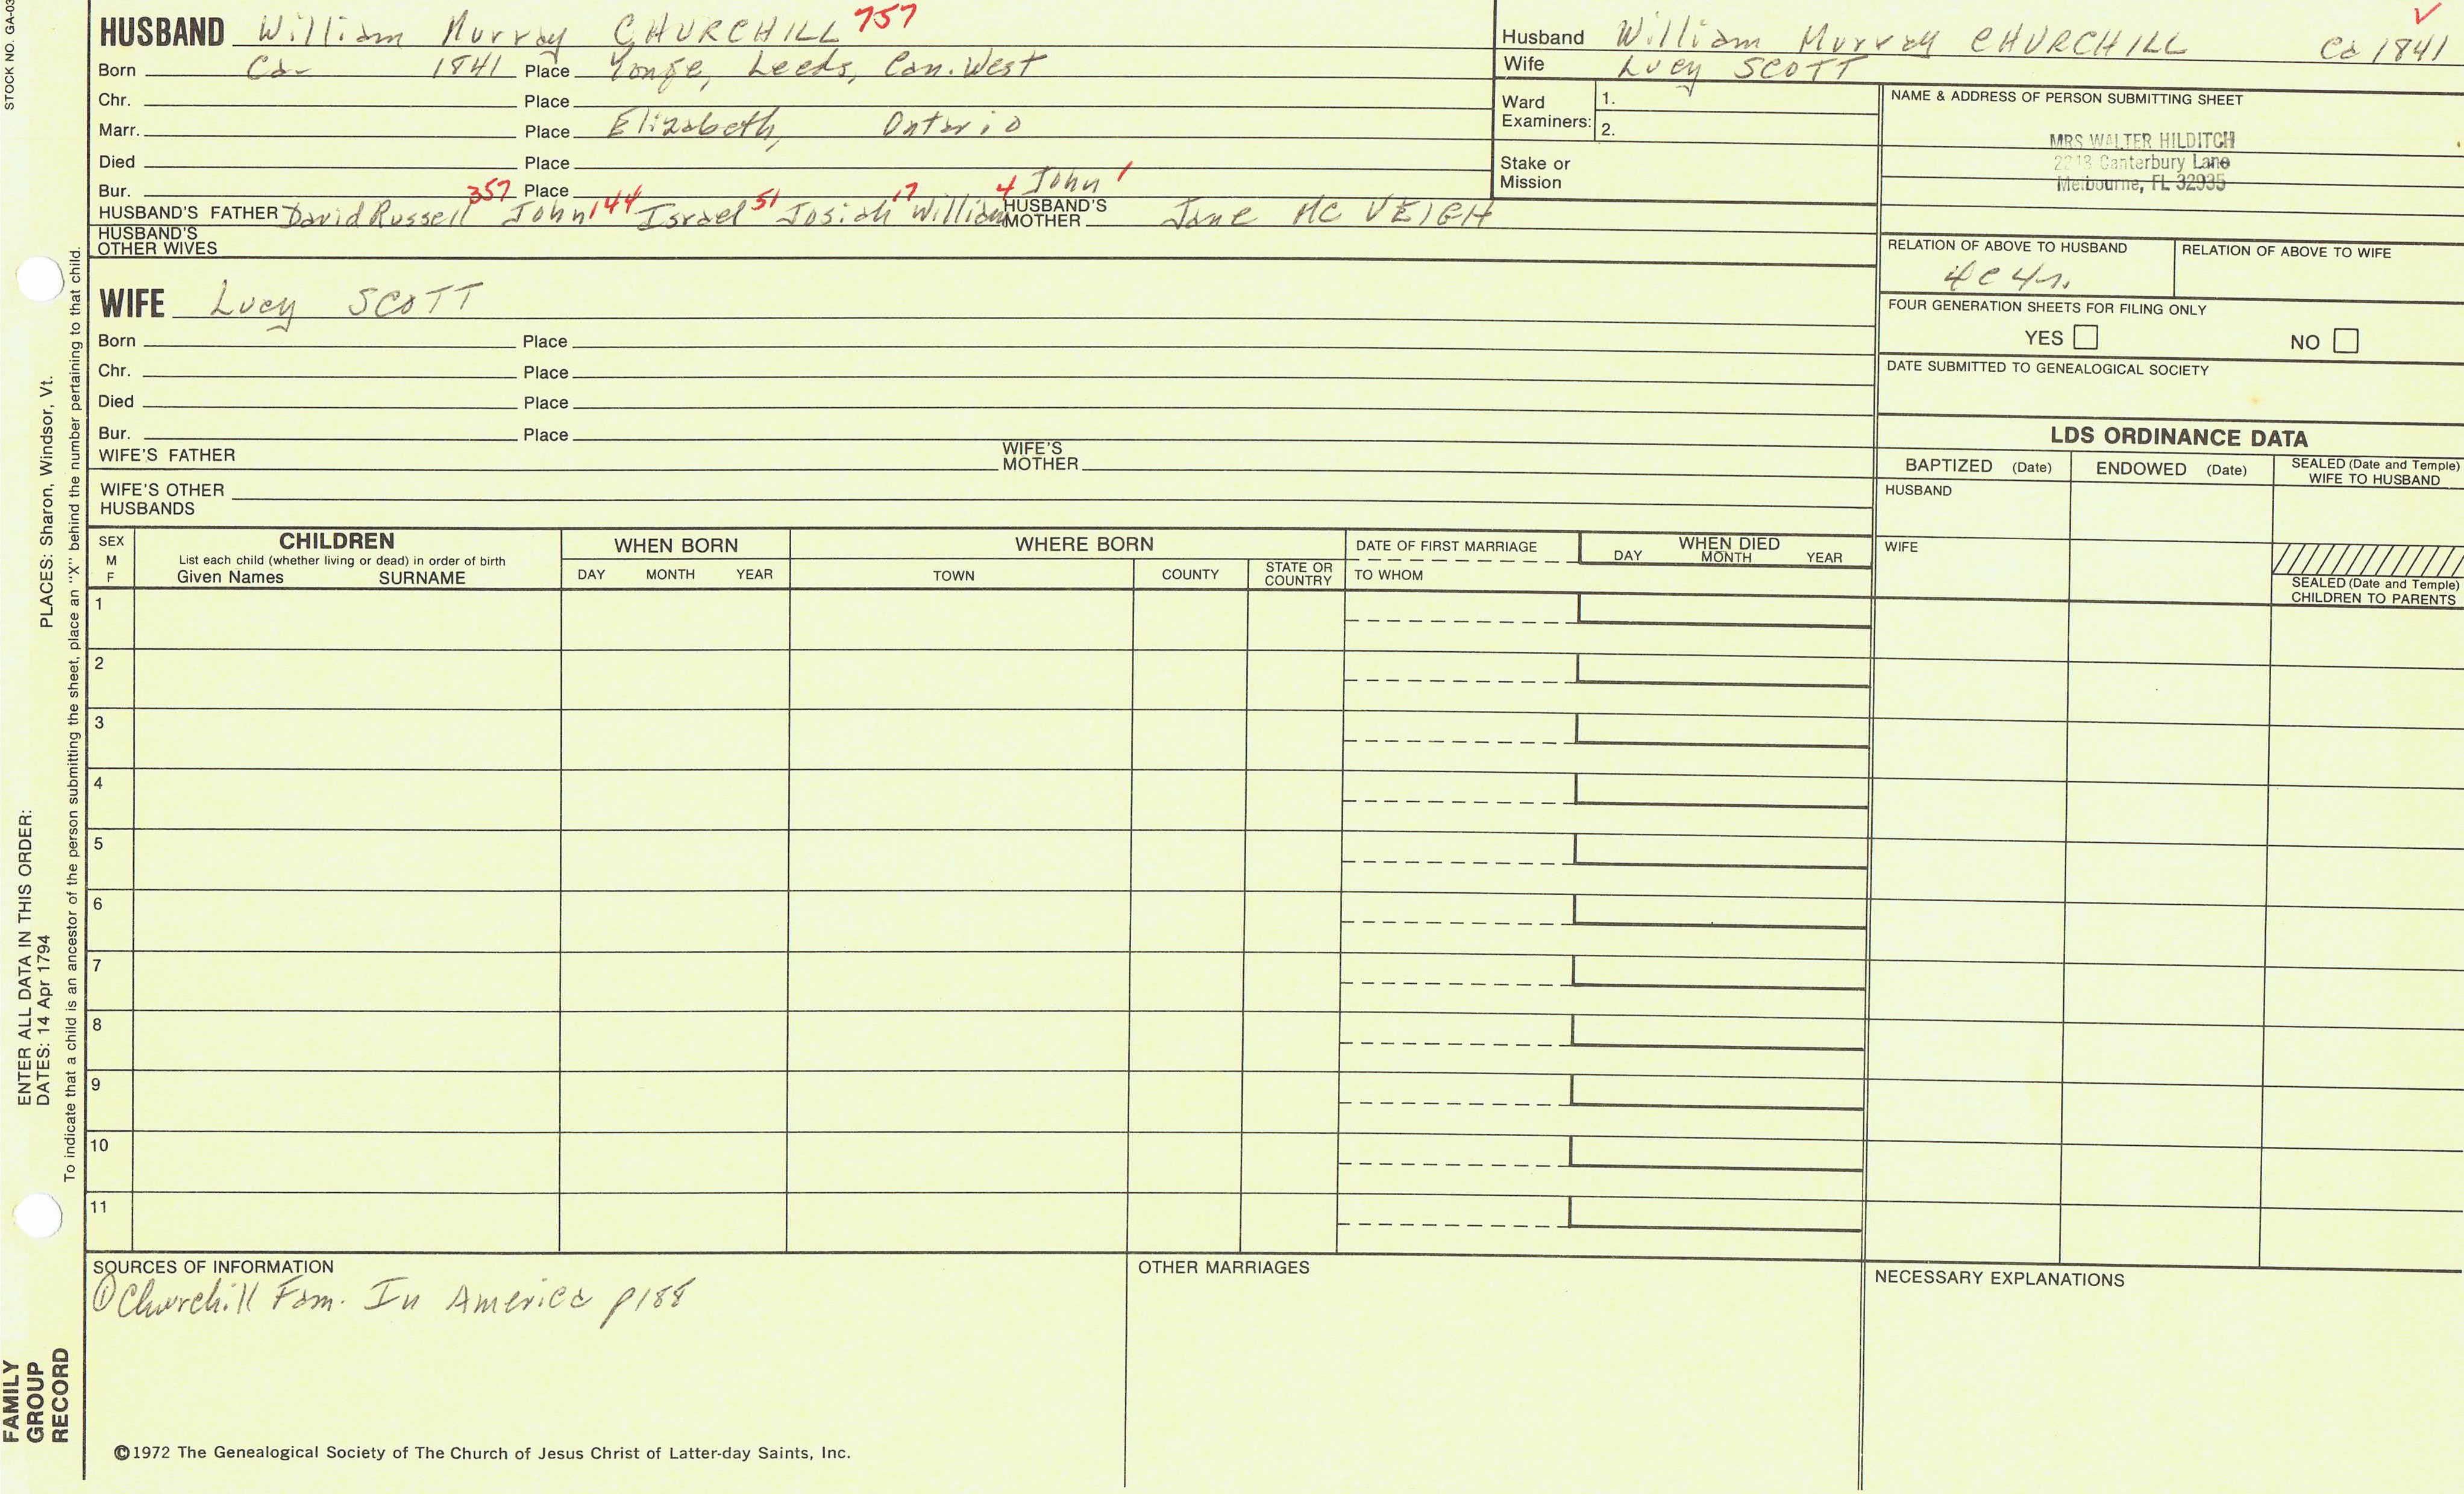 STOCK NO. GA-03
HUSBAND William Murray CHURCHILL 757
Born Ca- 1841 Place Yonge, Leeds, Can. West
Chr. Place
Marr. Place Elizabeth, Ontario
Died Place
Bur. Place
HUSBAND'S FATHER David Russell 357 John 144 Israel 51 Josiah 17 William 4 John 1
HUSBAND'S MOTHER Jane MC VEIGH
HUSBAND'S OTHER WIVES
Husband William Murray CHURCHILL Ca 1841
Wife Lucy SCOTT
Ward Examiners: 1.
2.
Stake or Mission
NAME & ADDRESS OF PERSON SUBMITTING SHEET
MRS WALTER HILDITCH
Canterbury Lane
Melbourne, FL 32935
RELATION OF ABOVE TO HUSBAND
4c4r.
RELATION OF ABOVE TO WIFE
FOUR GENERATION SHEETS FOR FILING ONLY
YES NO
DATE SUBMITTED TO GENEALOGICAL SOCIETY
WIFE Lucy SCOTT
Born Place
Chr. Place
Died Place
Bur. Place
WIFE'S FATHER
WIFE'S MOTHER
WIFE'S OTHER HUSBANDS
LDS ORDINANCE DATA
BAPTIZED (Date) ENDOWED (Date) SEALED (Date and Temple) WIFE TO HUSBAND
HUSBAND
WIFE
SEALED (Date and Temple) CHILDREN TO PARENTS
SEX M F
CHILDREN
List each child (whether living or dead) in order of birth
Given Names SURNAME
WHEN BORN
DAY MONTH YEAR
WHERE BORN
TOWN COUNTY STATE OR COUNTRY
DATE OF FIRST MARRIAGE
TO WHOM
WHEN DIED
DAY MONTH YEAR
1
2
3
4
5
6
7
8
9
10
11
SOURCES OF INFORMATION
① Churchill Fam. In America p188
OTHER MARRIAGES
NECESSARY EXPLANATIONS
©1972 The Genealogical Society of The Church of Jesus Christ of Latter-day Saints, Inc.
FAMILY GROUP RECORD
ENTER ALL DATA IN THIS ORDER:
DATES: 14 Apr 1794
PLACES: Sharon, Windsor, Vt.
To indicate that a child is an ancestor of the person submitting the sheet, place an "X" behind the number pertaining to that child.